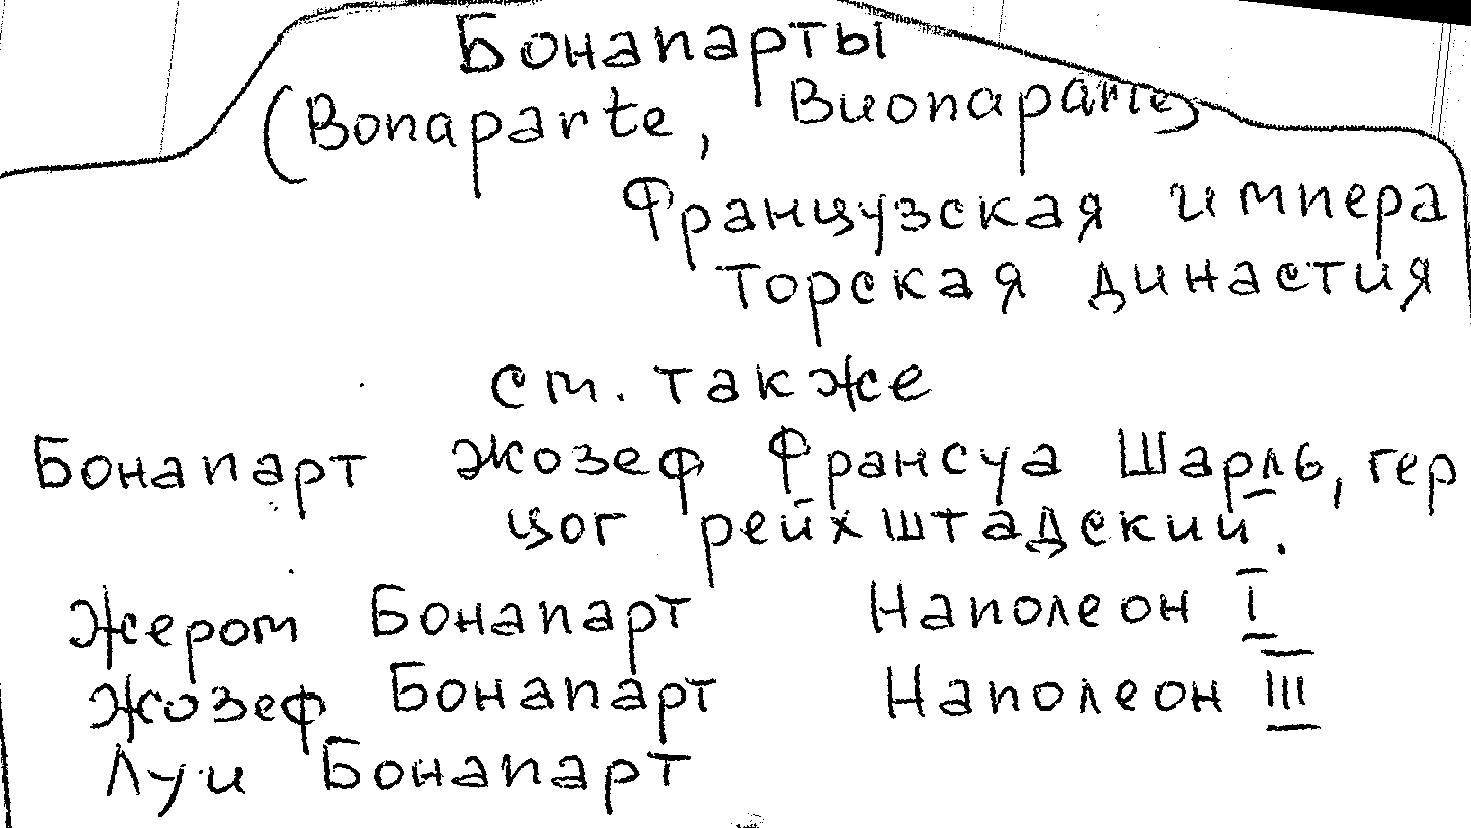 Бонапарты
(Bonaparte, Buonaparte)
Французская импера
торская династия
см. также
Бонапарт Жозеф Франсуа Шарль, гер
цог рейхштадский.
Жером Бонапарт Наполеон I
Жозеф Бонапарт Наполеон III
Луи Бонапарт